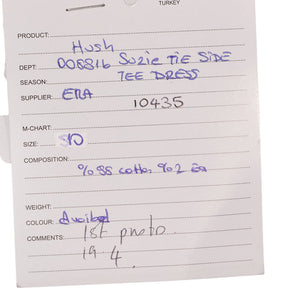 TURKEY
PRODUCT: Hush
DEPT: D08816 Suzie TIE SIDE
SEASON: TEE DRESS
SUPPLIER: ETRA
10435
M-CHART:
SIZE: S10
COMPOSITION:
cotton
WEIGHT:
COLOUR:
COMMENTS: 1st photo
19.4.